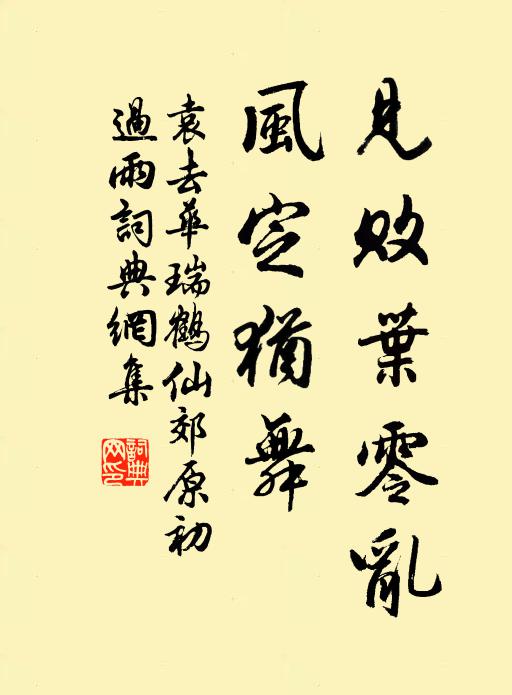 見敗葉零亂
風定猶舞
袁去華瑞鶴仙郊原初
過雨詞典網集
詞典網印